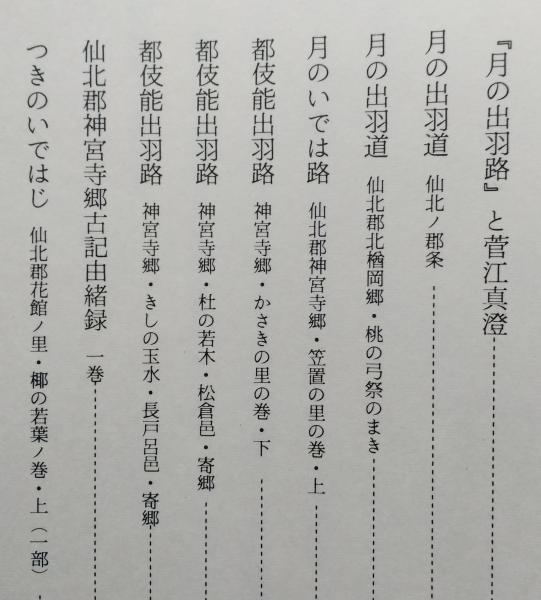 『月の出羽路』と菅江真澄
月の出羽道 仙北ノ郡条
月の出羽道 仙北郡北楢岡郷・桃の弓祭のまき
月のいでは路 仙北郡神宮寺郷・笠置の里の巻・上
都伎能出羽路 神宮寺郷・かさきの里の巻・下
都伎能出羽路 神宮寺郷・杜の若木・松倉邑・寄郷
都伎能出羽路 神宮寺郷・きしの玉水・長戸呂邑・寄郷
仙北郡神宮寺郷古記由緒録 一巻
つきのいではじ 仙北郡花館ノ里・椰の若葉ノ巻・上（一部）